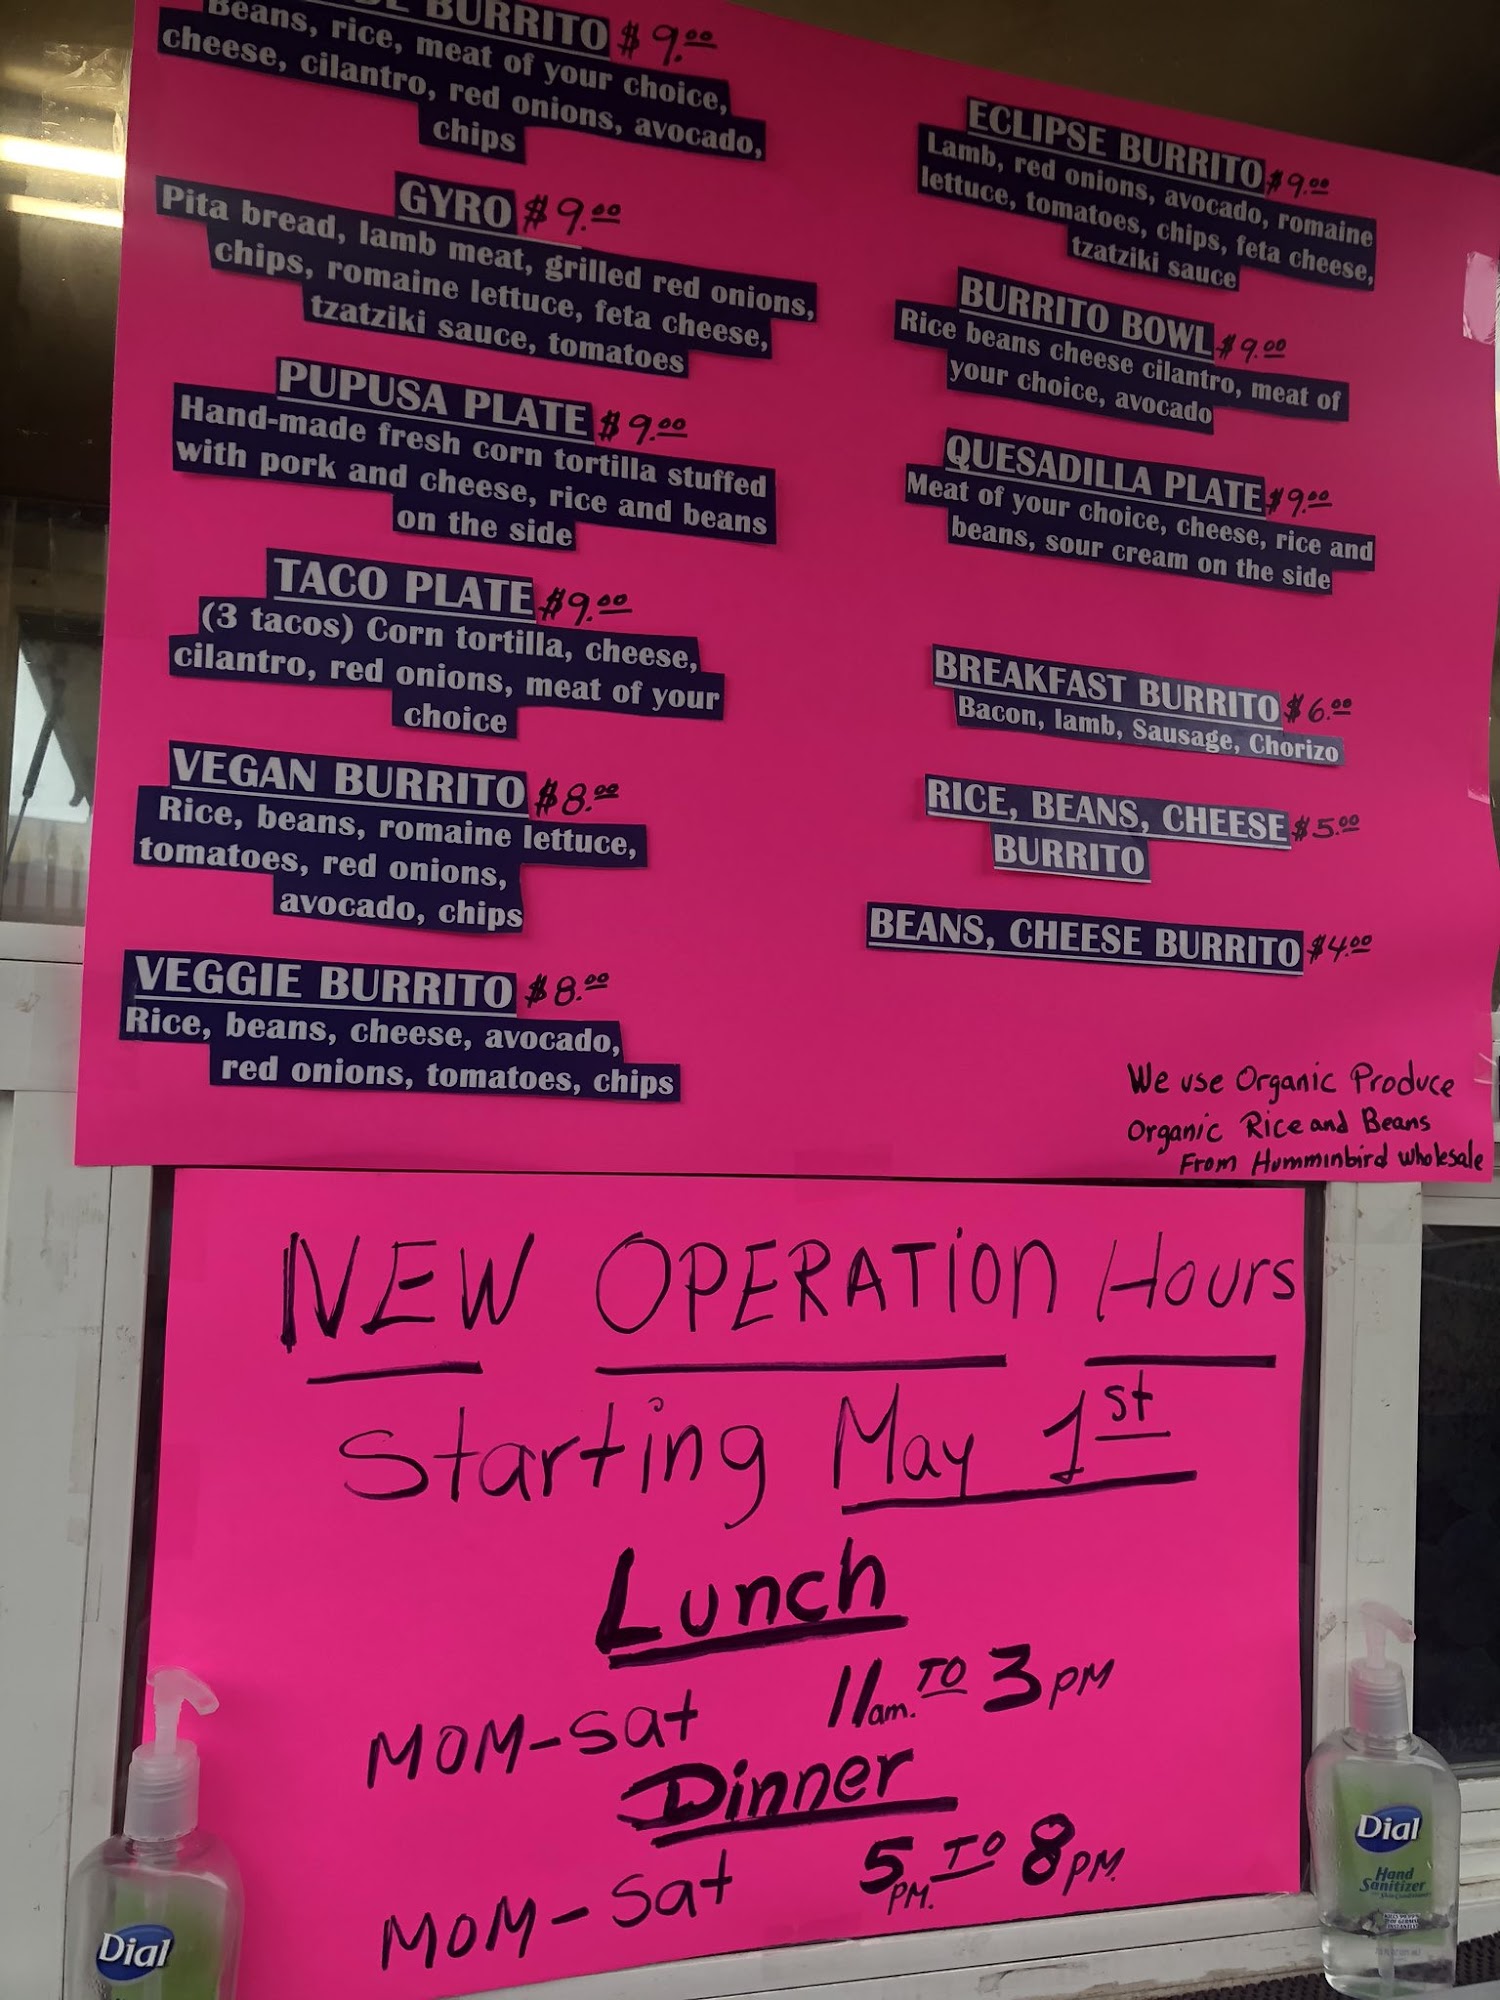 BURRITO $9.00
Beans, rice, meat of your choice,
cheese, cilantro, red onions, avocado,
chips
GYRO $9.00
Pita bread, lamb meat, grilled red onions,
chips, romaine lettuce, feta cheese,
tzatziki sauce, tomatoes
PUPUSA PLATE $9.00
Hand-made fresh corn tortilla stuffed
with pork and cheese, rice and beans
on the side
TACO PLATE $9.00
(3 tacos) Corn tortilla, cheese,
cilantro, red onions, meat of your
choice
VEGAN BURRITO $8.00
Rice, beans, romaine lettuce,
tomatoes, red onions,
avocado, chips
VEGGIE BURRITO $8.00
Rice, beans, cheese, avocado,
red onions, tomatoes, chips
ECLIPSE BURRITO $9.00
Lamb, red onions, avocado, romaine
lettuce, tomatoes, chips, feta cheese,
tzatziki sauce
BURRITO BOWL $9.00
Rice beans cheese cilantro, meat of
your choice, avocado
QUESADILLA PLATE $9.00
Meat of your choice, cheese, rice and
beans, sour cream on the side
BREAKFAST BURRITO $6.00
Bacon, lamb, Sausage, Chorizo
RICE, BEANS, CHEESE $5.00
BURRITO
BEANS, CHEESE BURRITO $4.00
We use Organic Produce
Organic Rice and Beans
From Humminbird wholesale
NEW OPERATION Hours
Starting May 1st
Lunch
MOM-Sat 11am. TO 3PM
Dinner
MOM-Sat 5PM. TO 8PM.
Dial
Dial
Hand
Sanitizer